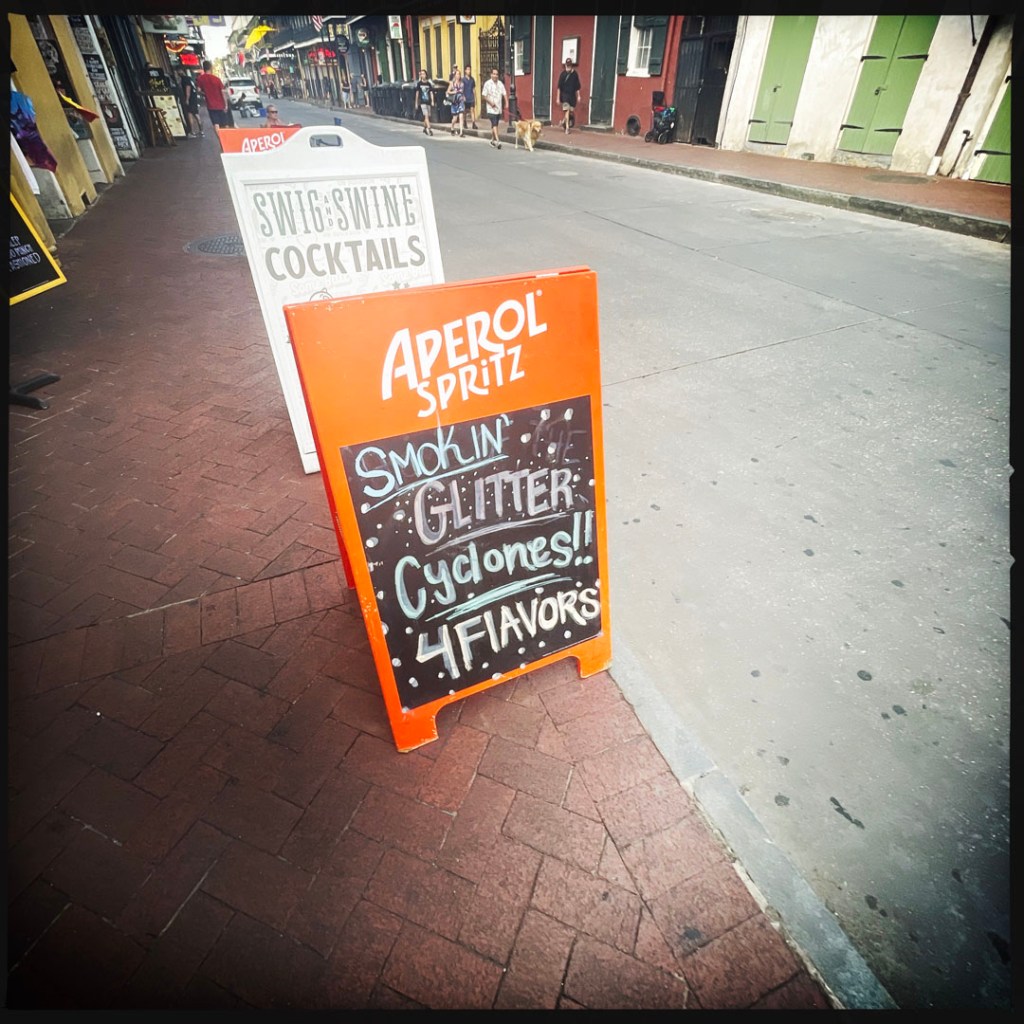 APEROL
SWIG AND SWINE
COCKTAILS
APEROL
SPRITZ
SMOKIN'
GLITTER
Cyclones!!
4 FlAVORS